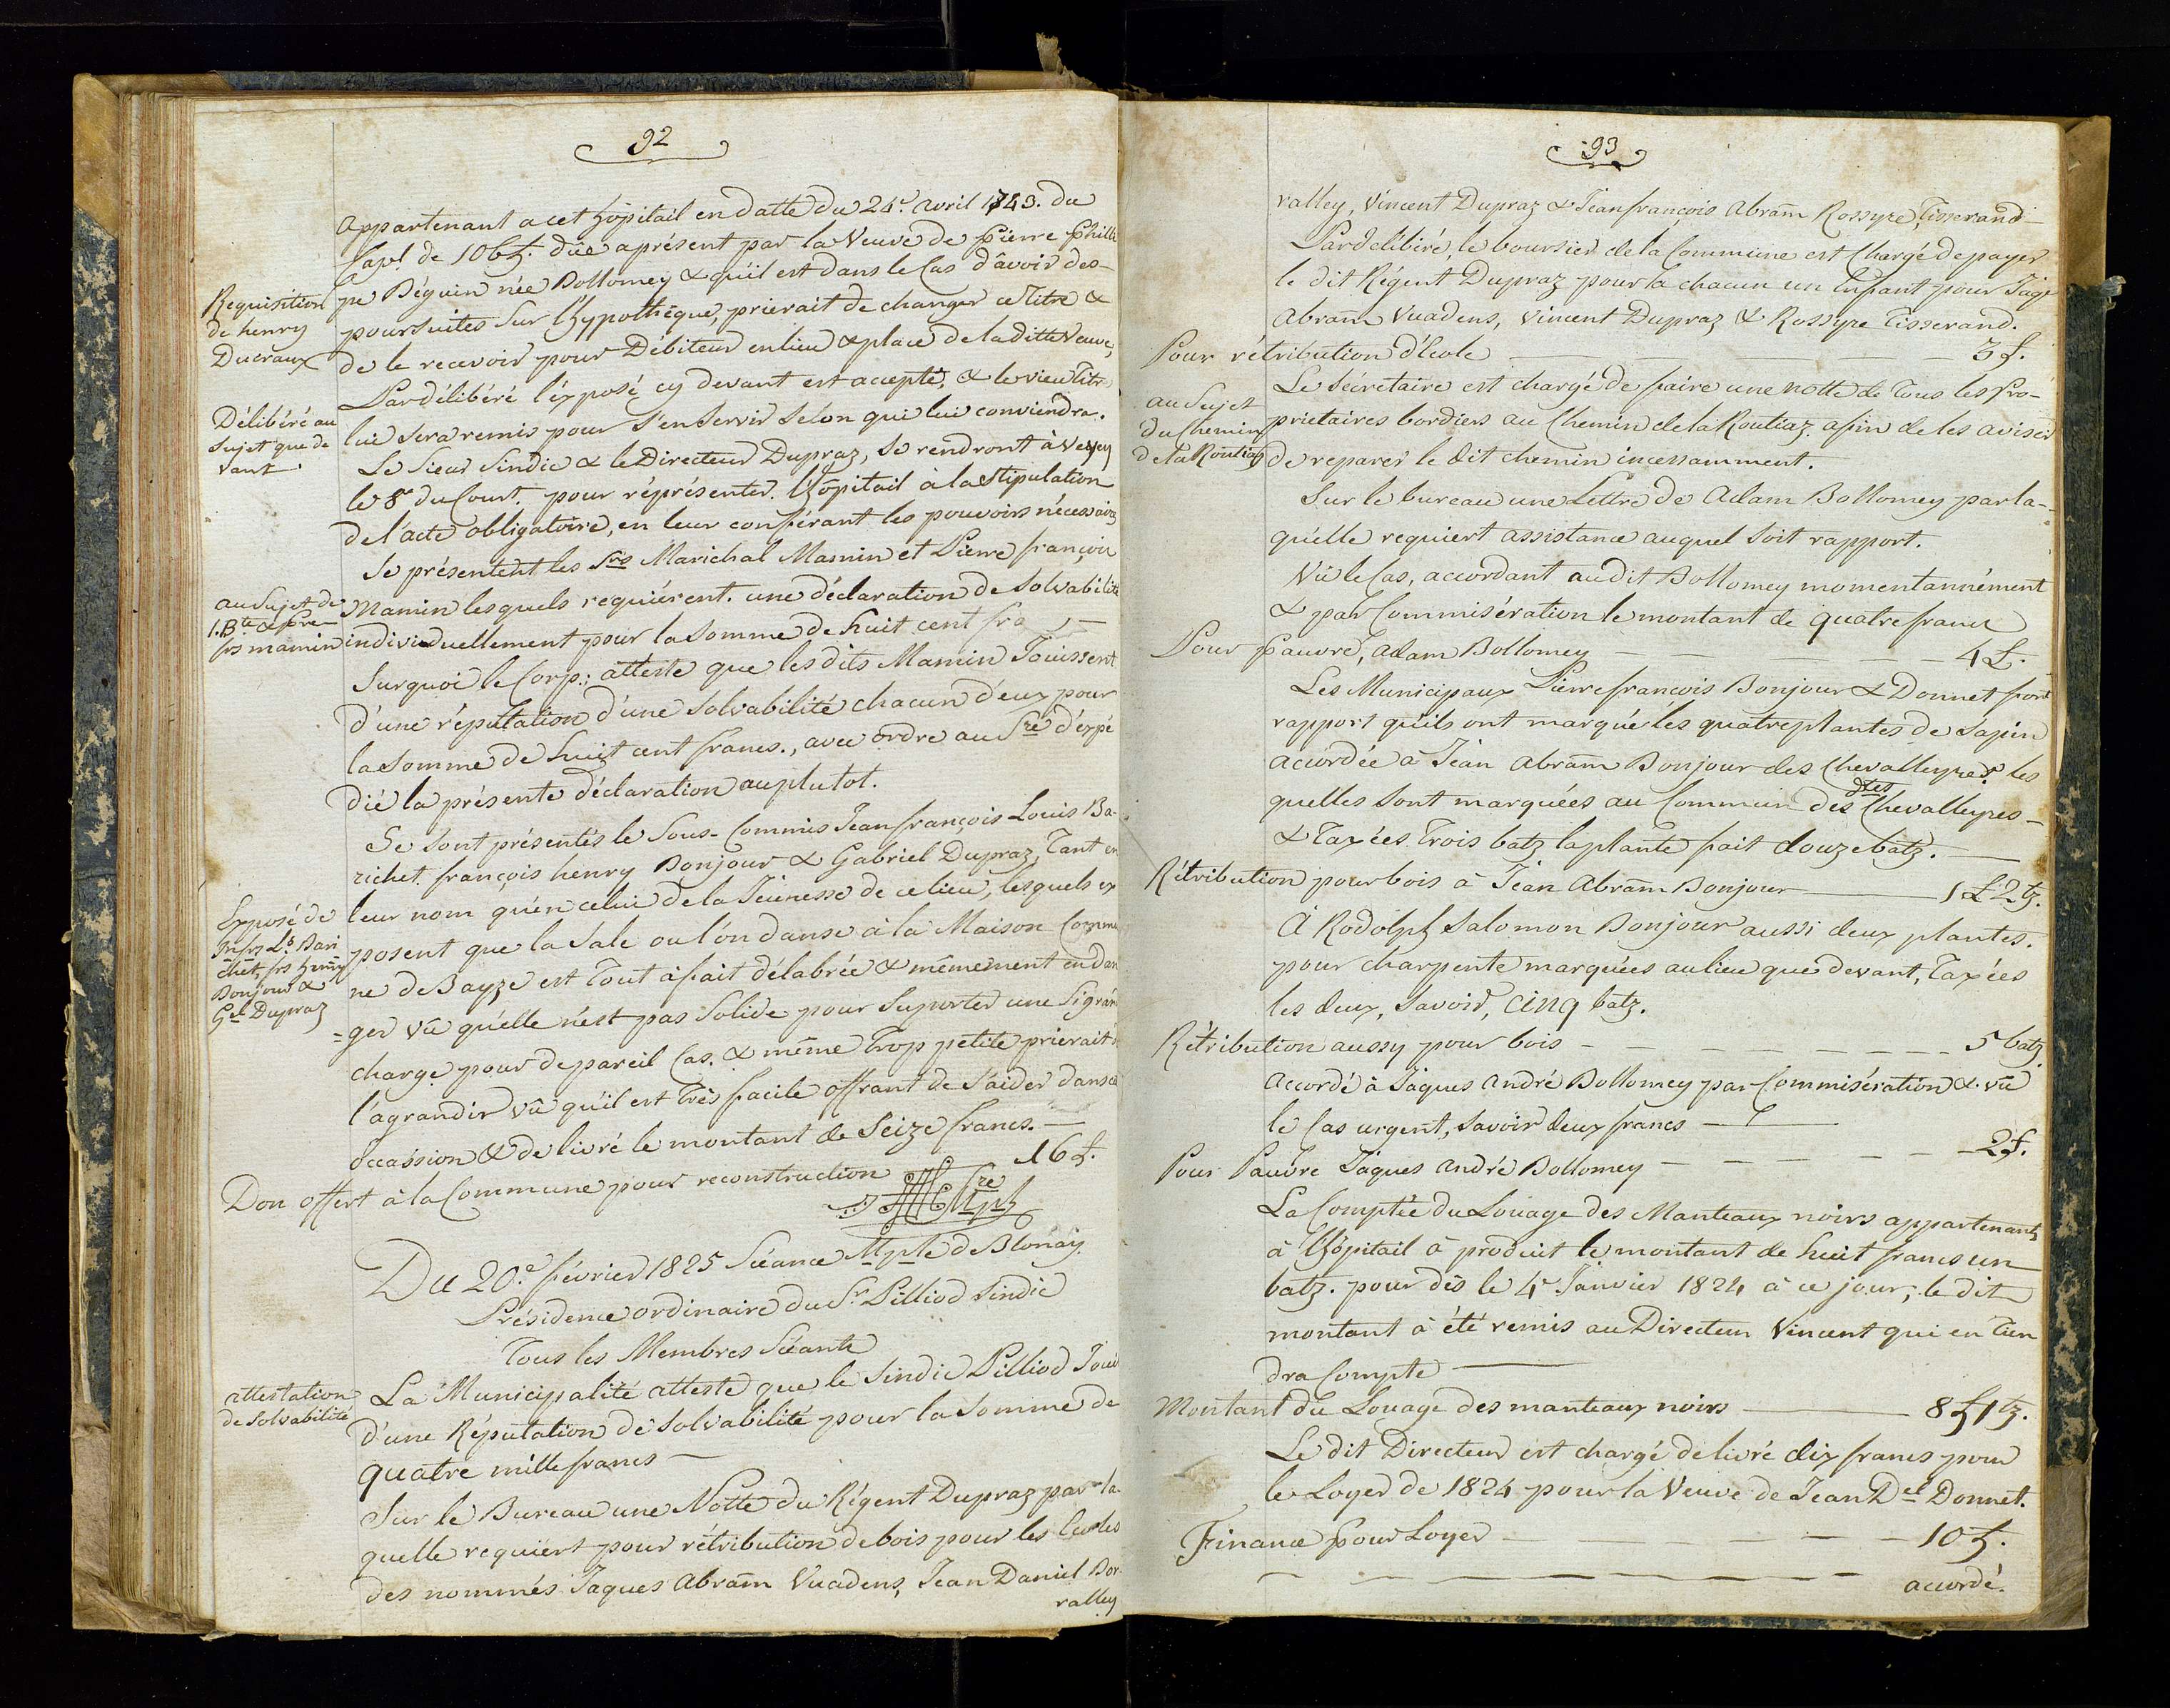 92
appartenant a cet hôpitail en datte du 24.e avril 1743. du
Capl. de 106 £. dûe aprésent par la Veuve de Pierre Phillip
Requisition
de henry
Ducraux
pe Béguin née Bollomey & qu'il est dans le Cas d'âvoir des
poursuites sur l'hypothêque, prierait de changer ce Titre &
de le recevoir pour Débiteur en lieu & place de la ditte Veuve,
Par délibéré l'éxposé cy devant est accepté, & le vieu Titre
Délibéré au
sujet que de
vant.
lui sera remis pour s'en servir selon qui lui conviendra.
Le Sieur Sindic & le Directeur Dupraz, se rendront à Vevey
le 8.e du Court. pour réprésenter l'hôpitail à la Stipulation
de l'acte obligatoire, en leur conférant les pouvoirs nécessaires
Se présentent les Srs Marichal Mamin et Pierre françois
au Sujet de
J. Bte & Pre
frs mamin
Mamin lesquels requiérent. une déclaration de Solvabilité
individuellement pour la Somme de huit cent fra
Surquoi le Corp.; atteste que les dits Mamin Jouissent
d'une réputation d'une Solvabilité chacun d'eux pour
la somme de huit cent francs., avec ordre au Sre d'expé
dié la présente déclaration auplutot.
Se sont présentés le Sous-Commis Jean françois Louis Ba-
richet. françois henry Bonjour & Gabriel Dupraz, Tant en
Exposé de
Jn frs Ls Bari
chet, frs henry
Bonjour &
Gel Dupraz
leur nom qu'en celui de la Jeunesse de ce lieu, lesquels ex
posent que la Sale ou l'on danse à la Maison Commu
ne de Bayze est Tout à fait délabrée & mêmement en dan
=ger vû qu'elle n'est pas Solide pour Suporter une Si grán
charge pour de pareil Cas. & même Trop petite prierait d
l'agrandir vû qu'il est Très facile offrant de s'aider dans ce
occassion & de livré le montant de Seize francs. —
Don offert à la Commune pour reconstruction 16 £.
Sre
Mple
Du 20.e février 1825 Séance Mple de Blonay.
Présidence ordinaire du Sr Pilliod Sindic
Tous les Membres Séants
attestation
de Solvabilité
La Municipalité atteste que le Sindic Pilliod Jouit
d'une Réputation de Solvabilité pour la Somme de
quatre mille francs —
Sur le Bureau une Notte du Régent Dupraz par la
quelle requiert pour rétribution de bois pour les Ecoles
des nommés Jaques Abram Vuadens, Jean Daniel Bor-
ralley
93
ralley, Vincent Dupraz & Jean françois Abram Rossyre, Tisserand
Par délibéré, le boursier de la Commune est Chargé de payer
le dit Régent Dupraz pour la chacun un Enfant pour Jaqs
Abram Vuadens, Vincent Dupraz & Rossyre Tisserand.
Pour rétribution d'Ecole — 3 £.
Le Sécrétaire est chargé de faire une notte de Tous les Pro-
au Sujet
du Chemin
de la Routiaz
prietaires bordiers au Chemin de la Routiaz. afin de les aviser
de reparer le dit chemin incessamment.
Sur le bureau une Lettre de Adam Bollomey par la-
qu'elle requiert assistance auquel soit rapport.
Vû le Cas, accordant au dit Bollomey momentannément
& par Commisération le montant de quatre francs
Pour pauvre, Adam Bollomey — 4 £.
Les Municipaux Pierre françois Bonjour & Donnet font
rapport qu'ils ont marqué les quatre plantes de Sapin
accordée à Jéan Abram Bonjour des Chevalleyres. les
quelles sont marquées au Commun des dtes Chevalleyres —
& Taxées Trois batz la plante fait douze batz. —
Rétribution pour bois à Jéan Abram Bonjour — 1 £ 2 tz.
A Rodolph Salomon Bonjour aussi deux plantes.
pour charpente marquées au lieu que devant, Taxées
les deux, savoir, cinq batz.
Rétribution aussy pour bois — 5 batz
Accordé à Jâques André Bollomey par Commisération & vû
le Cas urgent, savoir deux francs —
Pour Pauvre Jâques André Bollomey — 2 £.
La Comptée du Louage des Manteaux noirs appartenants
à l'hôpitail à produit le montant de huit francs un
batz. pour dès le 4.e Janvier 1824 à ce jour; le dit
montant à été remis au Directeur Vincent qui en Tien
dra Compte —
Montant du Louage des manteaux noirs — 8 £ 1 tz.
Le dit Directeur est chargé de livré dix francs pour
le Loyer de 1824 pour la Veuve de Jean Del Donnet.
Finance pour Loyer — 10 £.
accordé.